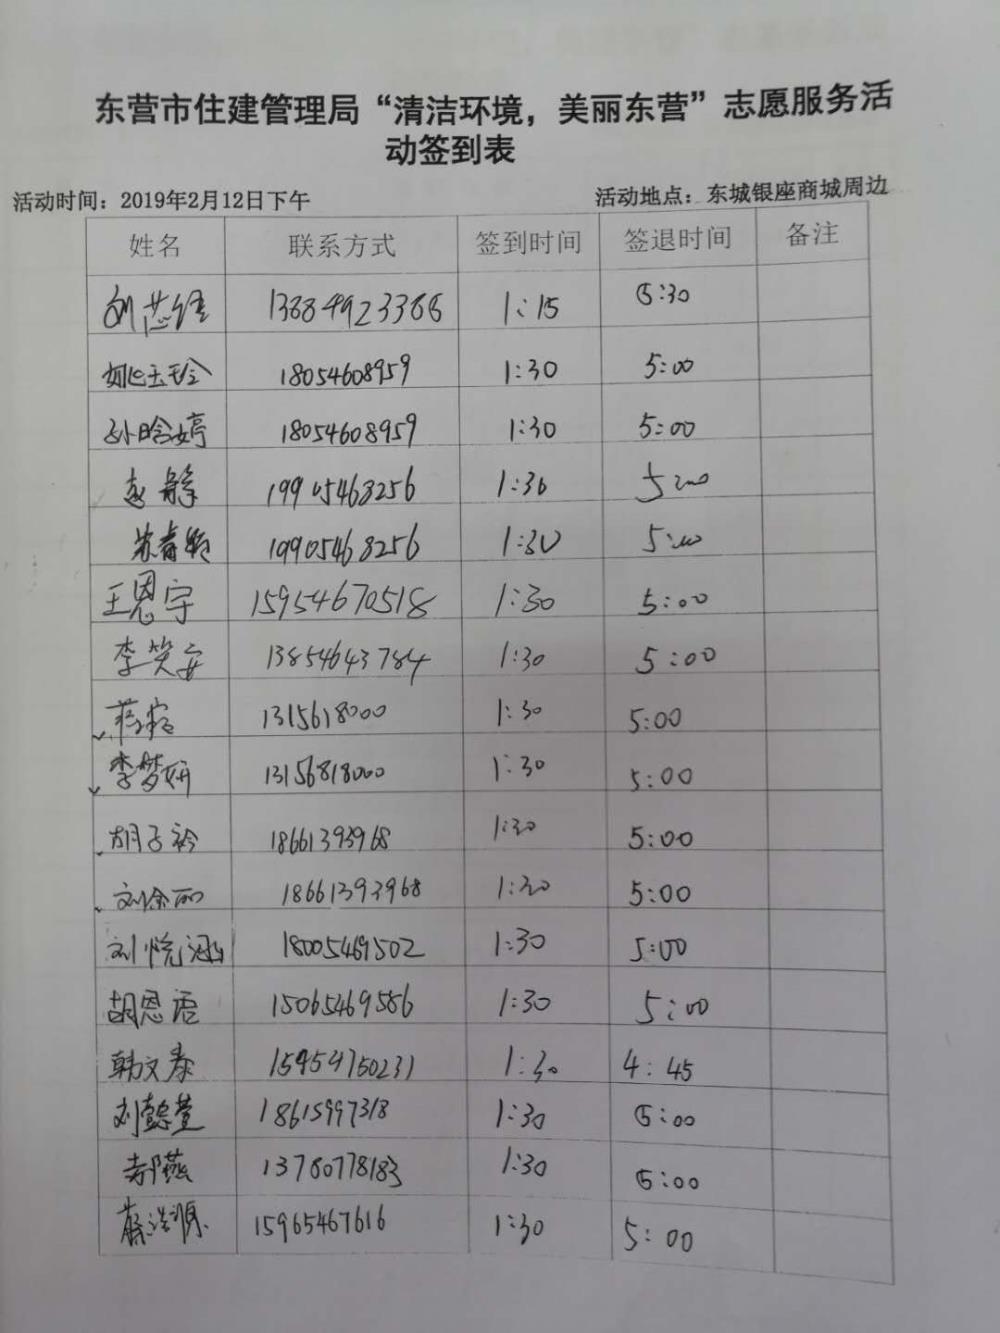 东营市住建管理局“清洁环境，美丽东营”志愿服务活
动签到表
活动时间：2019年2月12日下午 活动地点：东城银座商城周边
姓名 联系方式 签到时间 签退时间 备注
刘芯绫 13884923366 1:15 5:30
姚玉玲 18054608959 1:30 5:00
孙晗婷 18054608959 1:30 5:00
赵 19905468256 1:30 5:00
19905468256 1:30 5:00
王恩宇 15954670518 1:30 5:00
李笑安 13854643784 1:30 5:00
1315618000 1:30 5:00
李梦妍 13156818000 1:30 5:00
胡子衿 18661393968 1:30 5:00
刘余丽 18661393968 1:30 5:00
刘悦涵 18005469502 1:30 5:00
胡恩语 15065469586 1:30 5:00
韩文泰 15954750231 1:30 4:45
刘懿萱 18615997318 1:30 5:00
郝燕 13780778183 1:30 5:00
15965467616 1:30 5:00